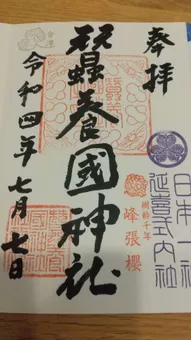 奉拝
日本一社
延喜式内社
樹齢千年
峰張櫻
蠶養國神社
令和四年七月七日
會津